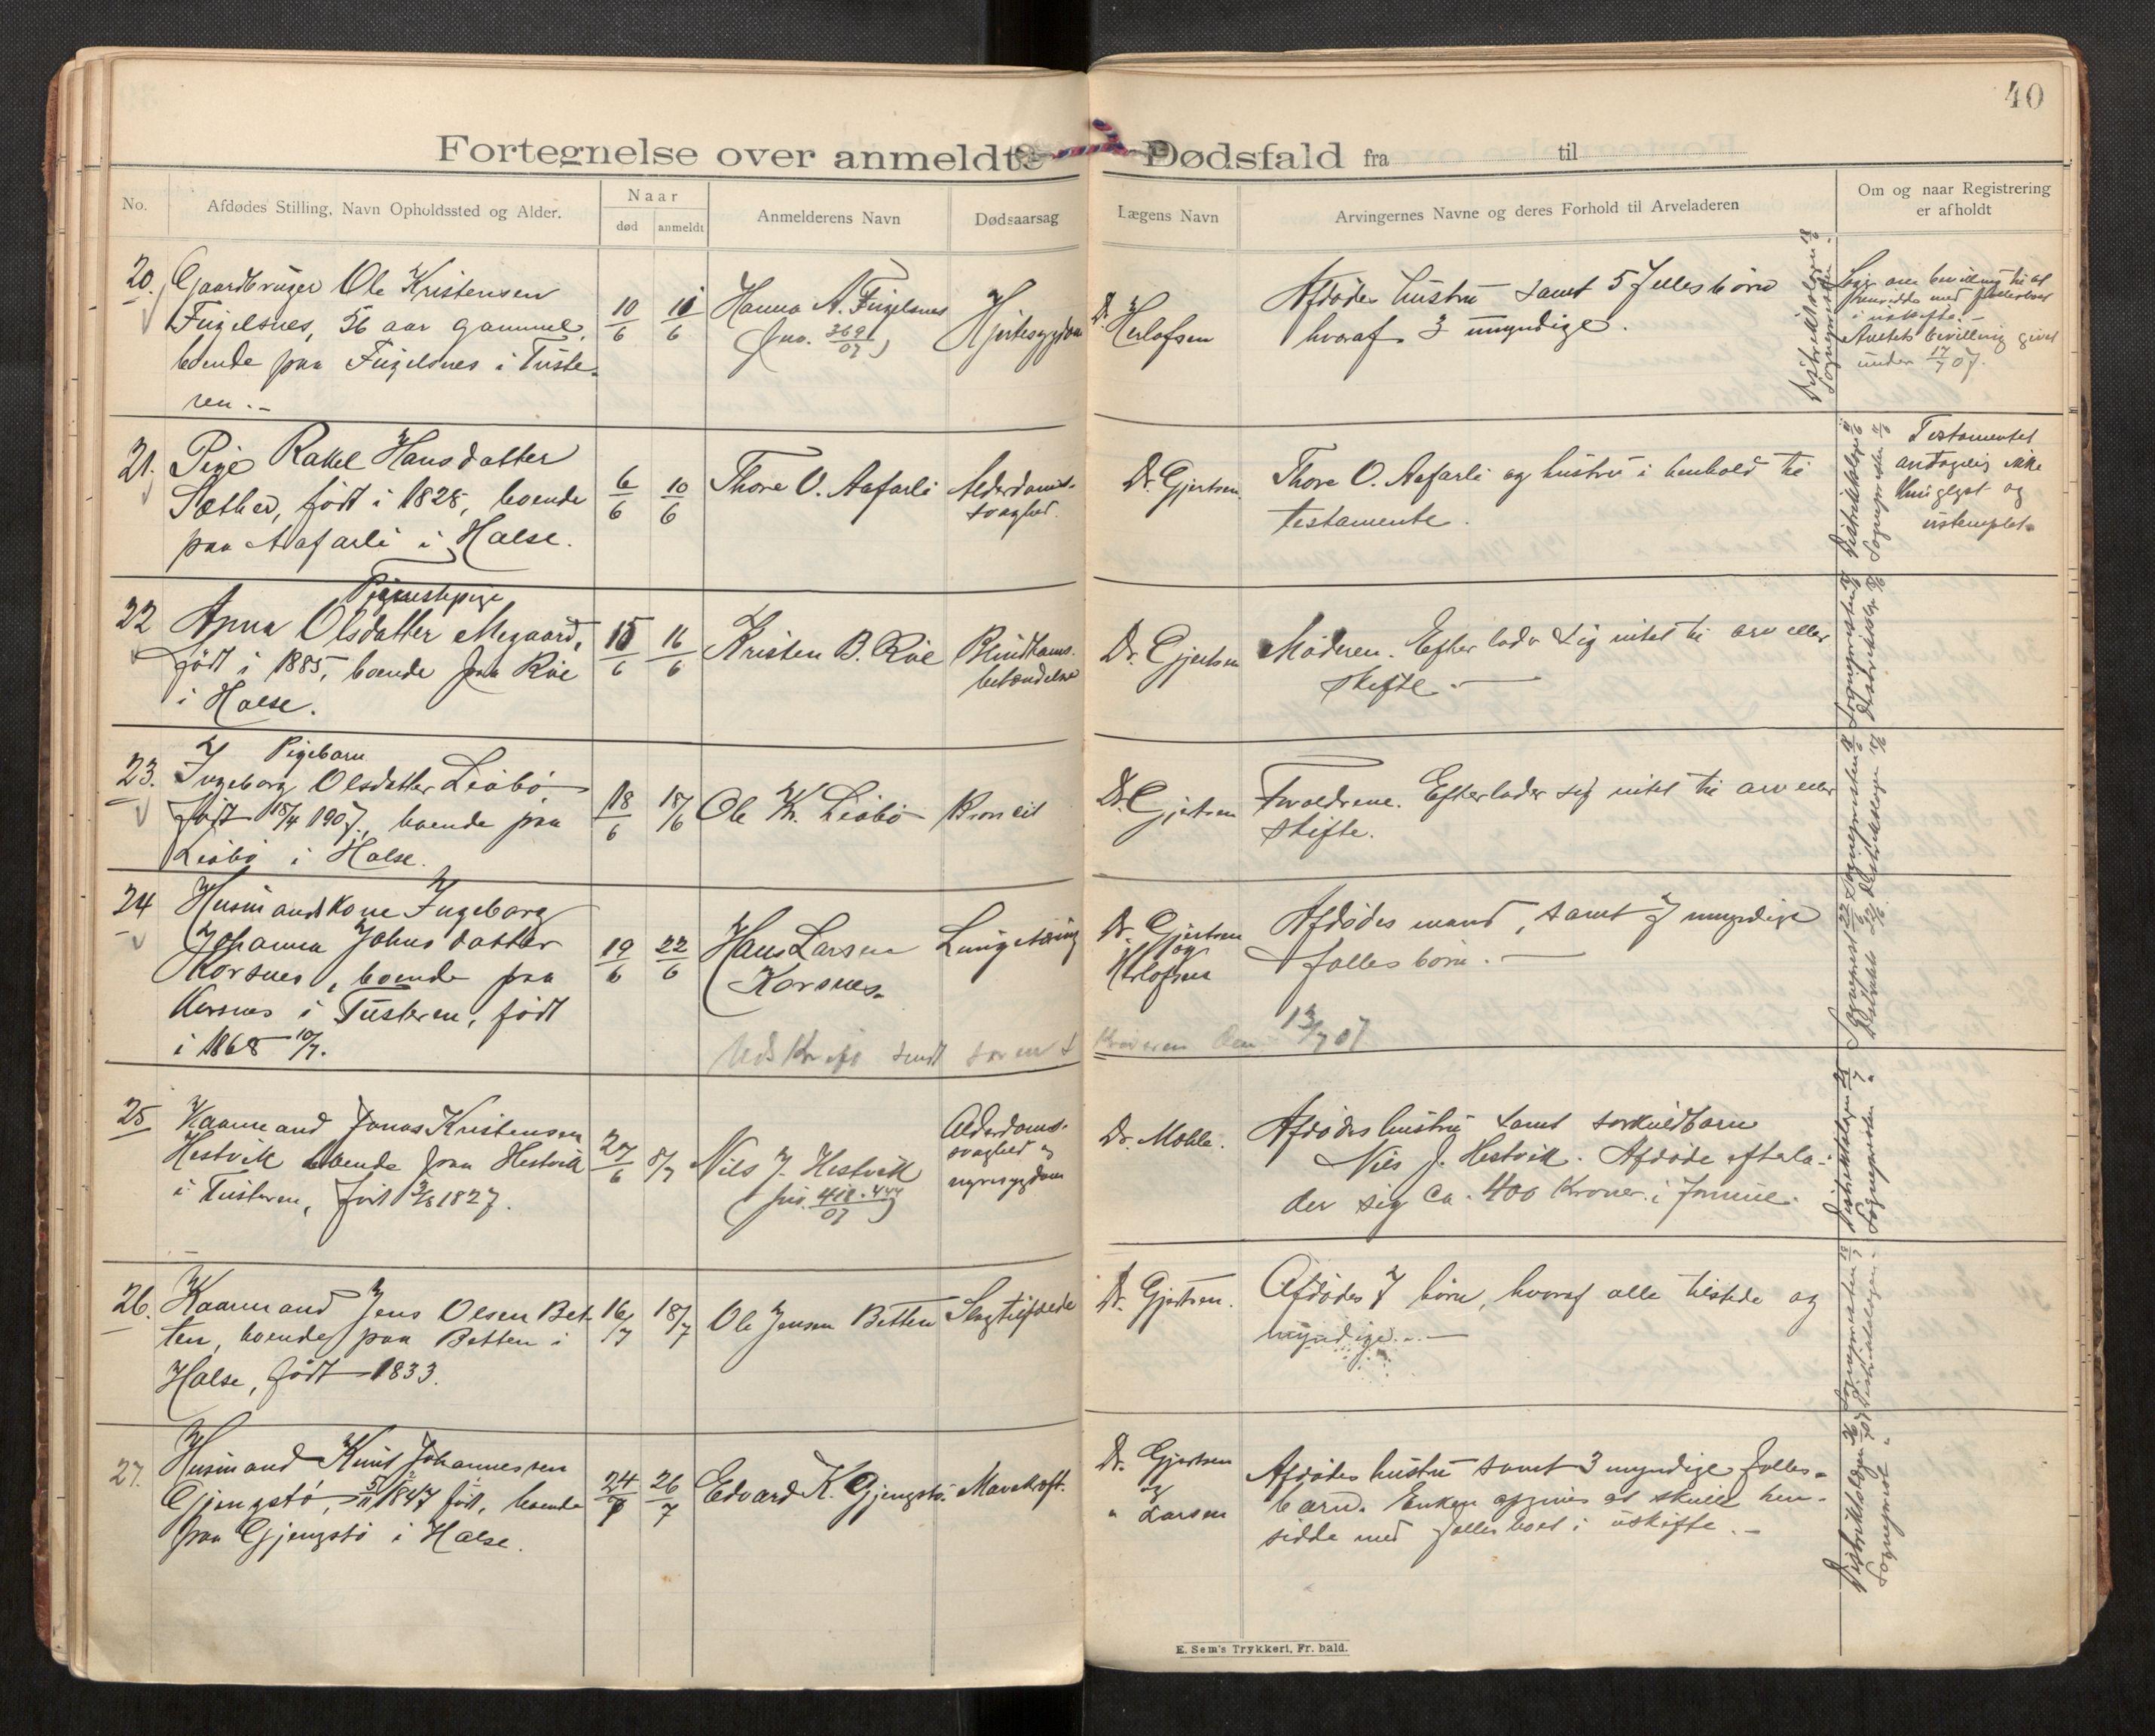 40
Fortegnelse over anmeldte Dødsfald fra til
No.
Afdødes Stilling, Navn Opholdssted og Alder.
Naar
død
anmeldt
Anmelderens Navn
Dødsaarsag
Lægens Navn
Arvingernes Navne og deres Forhold til Arveladeren
Om og naar Registrering
er afholdt
20.
Gaardbruger Ole Kristensen
Fugelsnes, 56 aar gammel,
boende paa Fugelsnes i Tuste-
ren.-
10/6
11/6
Hanna A. Fugelsnes
(jno. 369/07)
Hjertesygdom
Dr. Herlofsen
Afdødes hustru samt 5 fellesbørn
hvoraf 3 umyndige.
Distriktslægen
Sognepresten
i uskifte.-
Amtets bevilling givet
under 17/7 07.
21.
Pige Rakel Hansdatter
Sæther, født i 1828, boende
paa Aafarli i Halse.
6/6
10/6
Thore O. Aafarli
Alderdoms-
svaghed.
Dr. Gjertsen
Thore O. Aafarli og hustru i henhold til
testamente.
Testamentet
antagelig ikke
thinglyst og
ustemplet.
22
Tjenestepige
Anna Olsdatter Megaard,
født i 1885, boende paa Røe
i Halse.
15/6
16/6
Kristen B. Røe
Blindtarms-
betændelse
Dr. Gjertsen
Moderen. Efterlader sig intet til arv eller
skifte.-
23.
Pigebarn
Ingeborg Olsdatter Liabø
født 18/4 1907, boende paa
Liabø i Halse.
18/6
18/6
Ole K. Liabø
Dr. Gjertsen
Forældrene. Efterlader sig intet til arv eller
skifte.
24
Husmandskone Ingeborg
Johanna Johnsdatter
Korsnes, boende paa
Korsnes i Tusteren, født
i 1868 10/7.
19/6
22/6
Hans Larsen
Korsnes.
Lungetæring
Dr. Gjertsen
og
Herlofsen
Afdødes mand, samt 7 umyndige
fellesbørn.-
Udskrift sendt
den 13/7 07
25
Kaarmand Jonas Kristensen
Hestvik boende paa Hestvik
i Tusteren, født 3/8 1827.
27/6
8/7
Nils J. Hestvik
(jno. 418.444/07)
Alderdoms-
svaghed og
nyresygdom
Dr. Mohle.
Afdødes hustru samt særkuldbarn
Nils J. Hestvik. Afdøde efterla-
der sig ca. 400 Kroner i formue.
26.
Kaarmand Jens Olsen Bet-
ten, boende paa Betten i
Halse, født 1833.
16/7
18/7
Ole Jensen Betten
Slagtilfælde
Dr. Gjertsen.
Afdødes 7 børn, hvoraf alle tilstede og
myndige.-
27.
Husmand Knut Johannessen
Gjengstø, 5/11 1847 født, boende
paa Gjengstø i Halse.
24/7
26/7
Edvard K. Gjengstø.
Mavekræft.
Dr. Gjertsen
og
" Larsen
Afdødes hustru samt 3 myndige felles-
barn. Enken opgives at skulle hen-
sidde med fellesboet i uskifte.-
E. Sem's Trykkeri, Fr.hald.